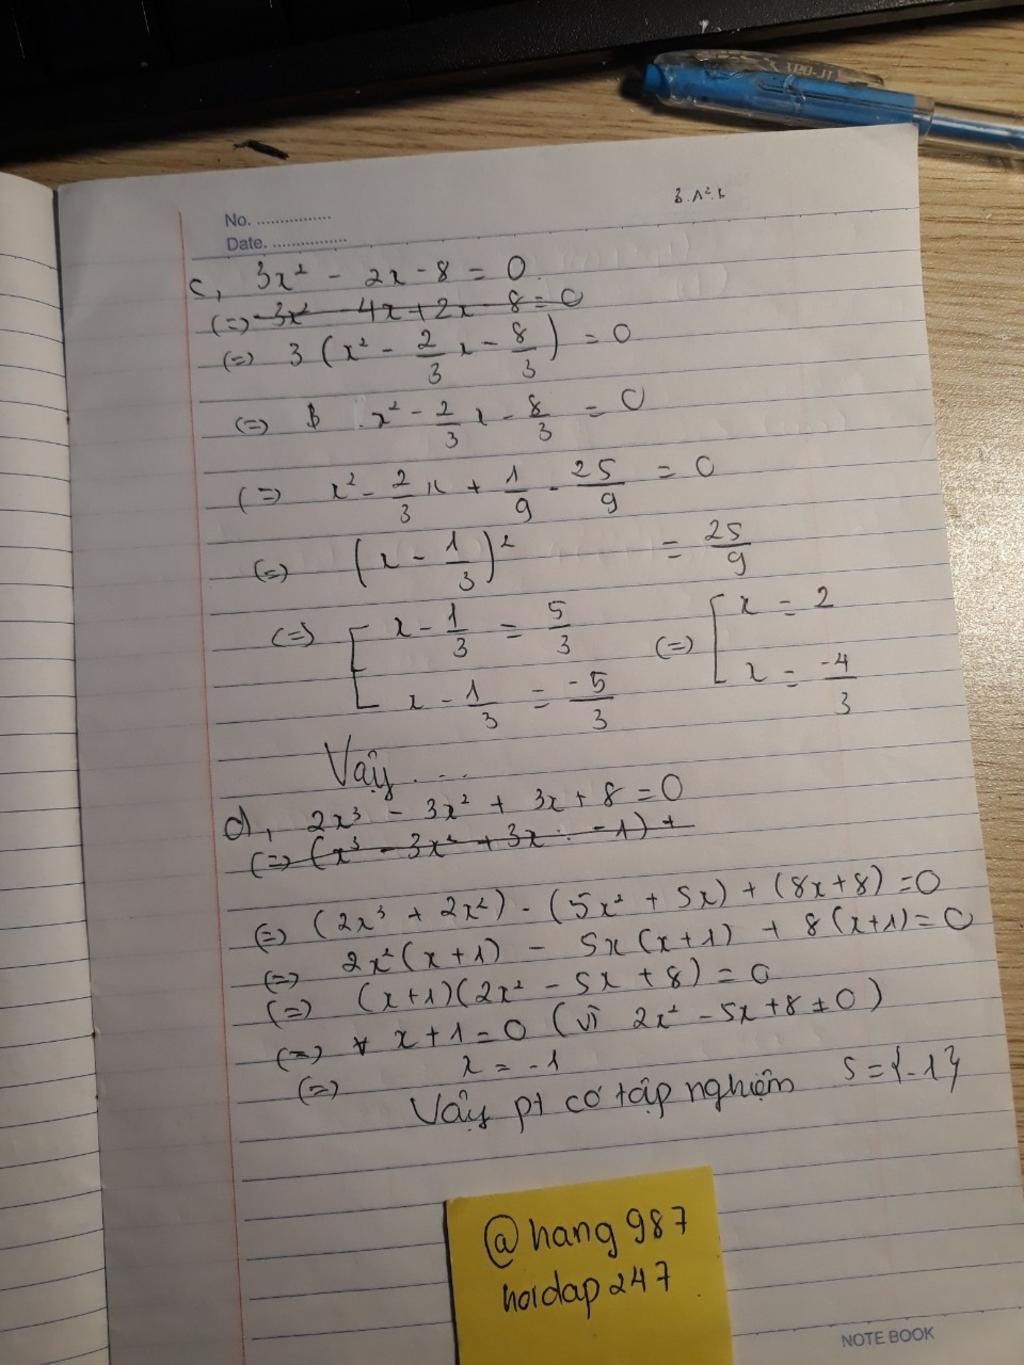 3.1².b
No. ................
Date. ................
c, 3x² - 2x - 8 = 0
(=) 3x² - 4x + 2x - 8 = 0
(=) 3 (x² - 2/3 x - 8/3) = 0
(=) x² - 2/3 x - 8/3 = 0
(=) x² - 2/3 x + 1/9 - 25/9 = 0
(=) (x - 1/3)² = 25/9
(=) [ x - 1/3 = 5/3 (=) [ x = 2
x - 1/3 = -5/3 x = -4/3
Vậy ....
d, 2x³ - 3x² + 3x + 8 = 0
(=) (x³ - 3x² + 3x - 1) +
(=) (2x³ + 2x²) - (5x² + 5x) + (8x + 8) = 0
(=) 2x²(x + 1) - 5x(x + 1) + 8(x + 1) = 0
(=) (x + 1)(2x² - 5x + 8) = 0
(=) x + 1 = 0 (vì 2x² - 5x + 8 ≠ 0)
(=) x = -1
Vậy pt có tập nghiệm S = {-1}
@hang987
hoidap247
NOTE BOOK